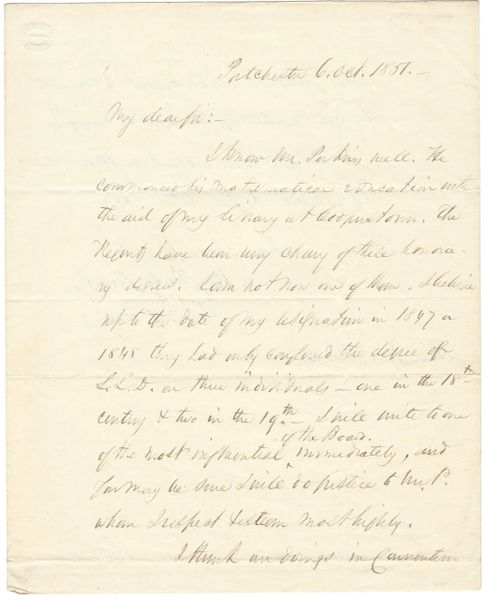 Portchester 6. Oct. 1851.—
My dear Sir:—
I know Mr. Perkins well. He
commenced his mathematical education with
the aid of my Library at Cooperstown. The
Regents have been very chary of these honora-
ry degrees. I am not now one of them. I believe
up to the date of my resignation in 1847 or
1848 they had only confered the degree of
L.L.D. on three individuals — one in the 18th
century & two in the 19th.— I will write to one
of the Board.
of the most influential immediately, and
you may be sure I will do justice to Mr. P.
whom I respect & esteem most highly.
I think our doings in Convention